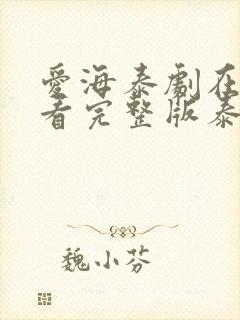 愛海泰劇在
看完整版泰
魏小芬